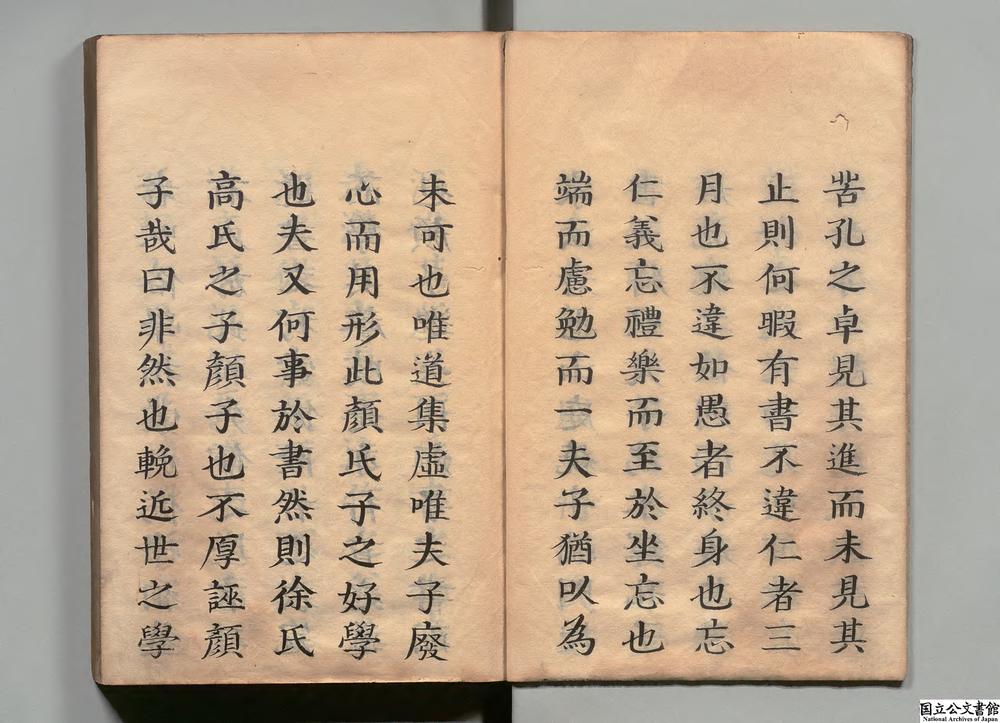 苦孔之卓見其進而未見其
止則何暇有書不違仁者三
月也不違如愚者終身也忘
仁義忘禮樂而至於坐忘也
端而慮勉而一夫子猶以為
未可也唯道集虛唯夫子廢
心而用形此顏氏子之好學
也夫又何事於書然則徐氏
高氏之子顏子也不厚誣顏
子哉曰非然也輓近世之學
国立公文書館
National Archives of Japan